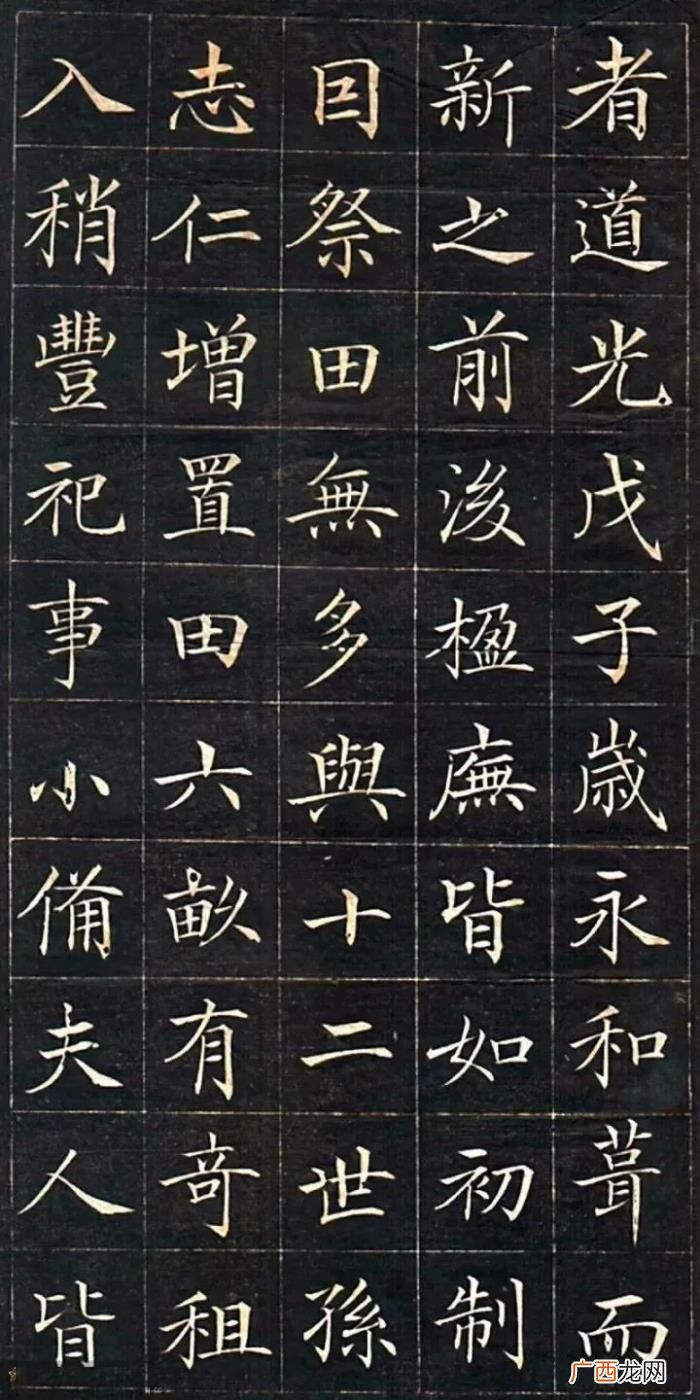 者道光戊子歲永和葺而
新之前後楹廡皆如初制
囙祭田無多與十二世孫
志仁增置田六畝有竒租
入稍豐祀事小備夫人皆
广西龙网